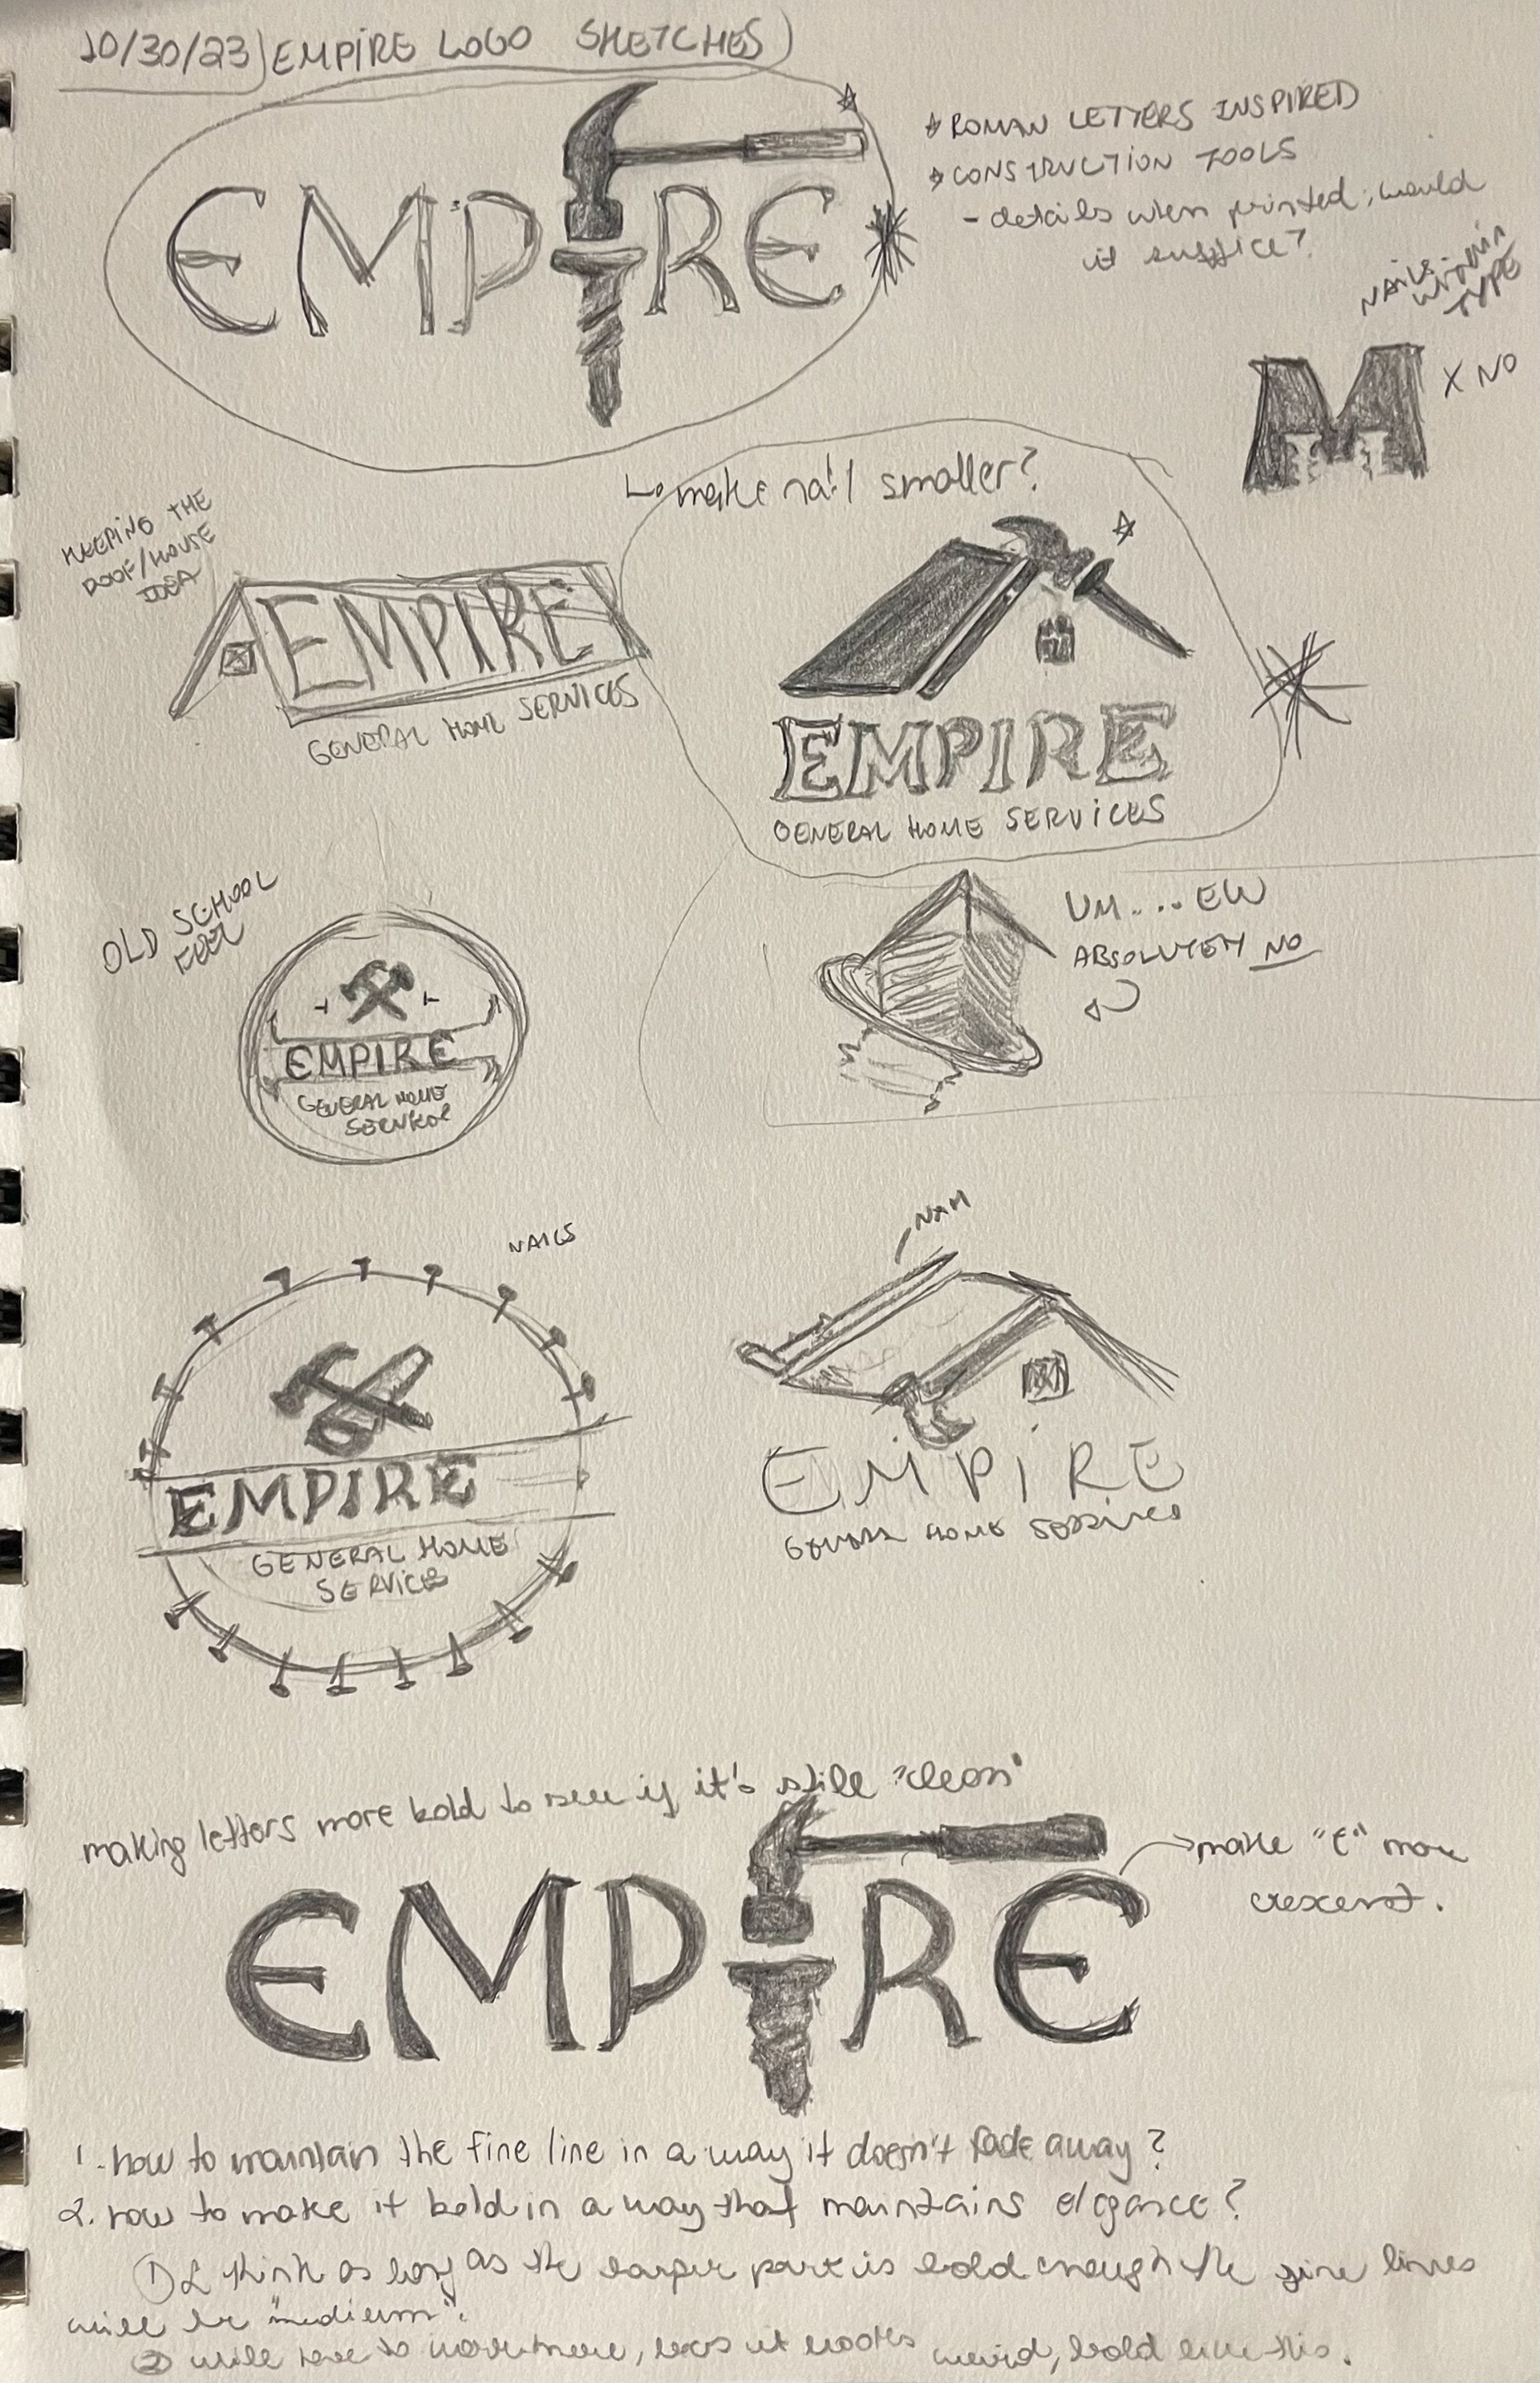 10/30/23) EMPIRE LOGO SKETCHES)
EMPIRE
* ROMAN LETTERS INSPIRED
* CONSTRUCTION TOOLS
- details when printed; would
it suffice?
NAILS WITHIN
TYPE
M
X NO
↳ make nail smaller?
KEEPING THE
ROOF/HOUSE
IDEA
EMPIRE
GENERAL HOME SERVICES
EMPIRE
GENERAL HOME SERVICES
OLD SCHOOL
FEEL
EMPIRE
GENERAL HOME
SERVICE
UM.... EW
ABSOLUTELY NO
NAILS
EMPIRE
GENERAL HOME
SERVICES
NAIL
EMPIRE
GENERAL HOME SERVICES
making letters more bold to see if it's still "clean"
EMPIRE
make "E" more
crescent.
1. how to maintain the fine line in a way it doesn't fade away?
2. how to make it bold in a way that maintains elegance?
① I think as long as the larger part is bold enough the fine lines
will be "medium".
② will have to, it looks weird, bold like this.